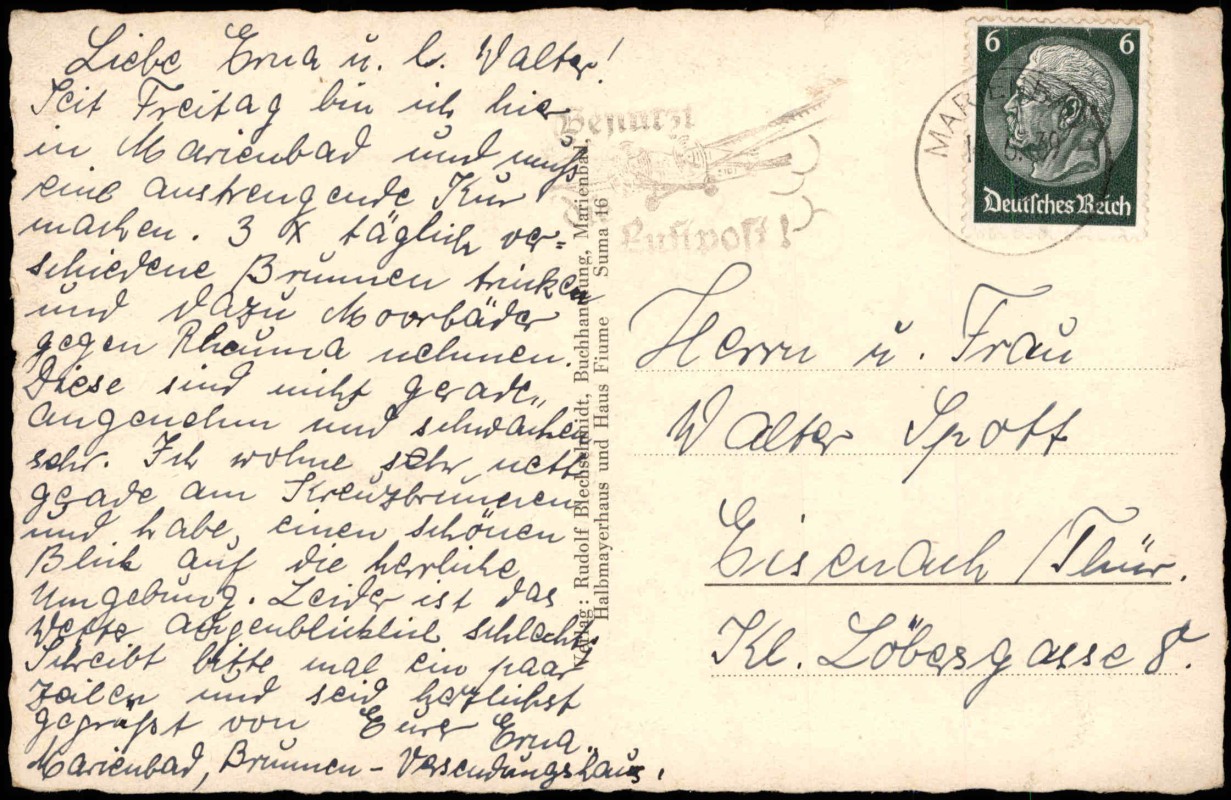 Liebe Erna u. l. Walter!
Seit Freitag bin ich hier
in Marienbad und muß
eine anstrengende Kur
machen. 3 X täglich ver=
schiedene Brunnen trinken
und dazu Moorbäder
gegen Rheuma nehmen.
Diese sind nicht gerade
angenehm und schwächen
sehr. Ich wohne sehr nett
gerade am Kreuzbrunnen
und habe einen schönen
Blick auf die herrliche
Umgebung. Leider ist das
Wetter augenblicklich schlecht.
Schreibt bitte mal ein paar
Zeilen und seid herzlichst
gegrüßt von Eurer Erna.
Marienbad, Brunnen-Versendungshaus.
Verlag: Rudolf Blechschmidt, Buchhandlung, Marienbad,
Halbmayerhaus und Haus Fiume Suma 16
Benutzt
Luftpost!
6 6
Deutsches Reich
MARIENBAD
Herrn u. Frau
Walter Spott
Eisenach /Thür.
Kl. Löbersgasse 8.